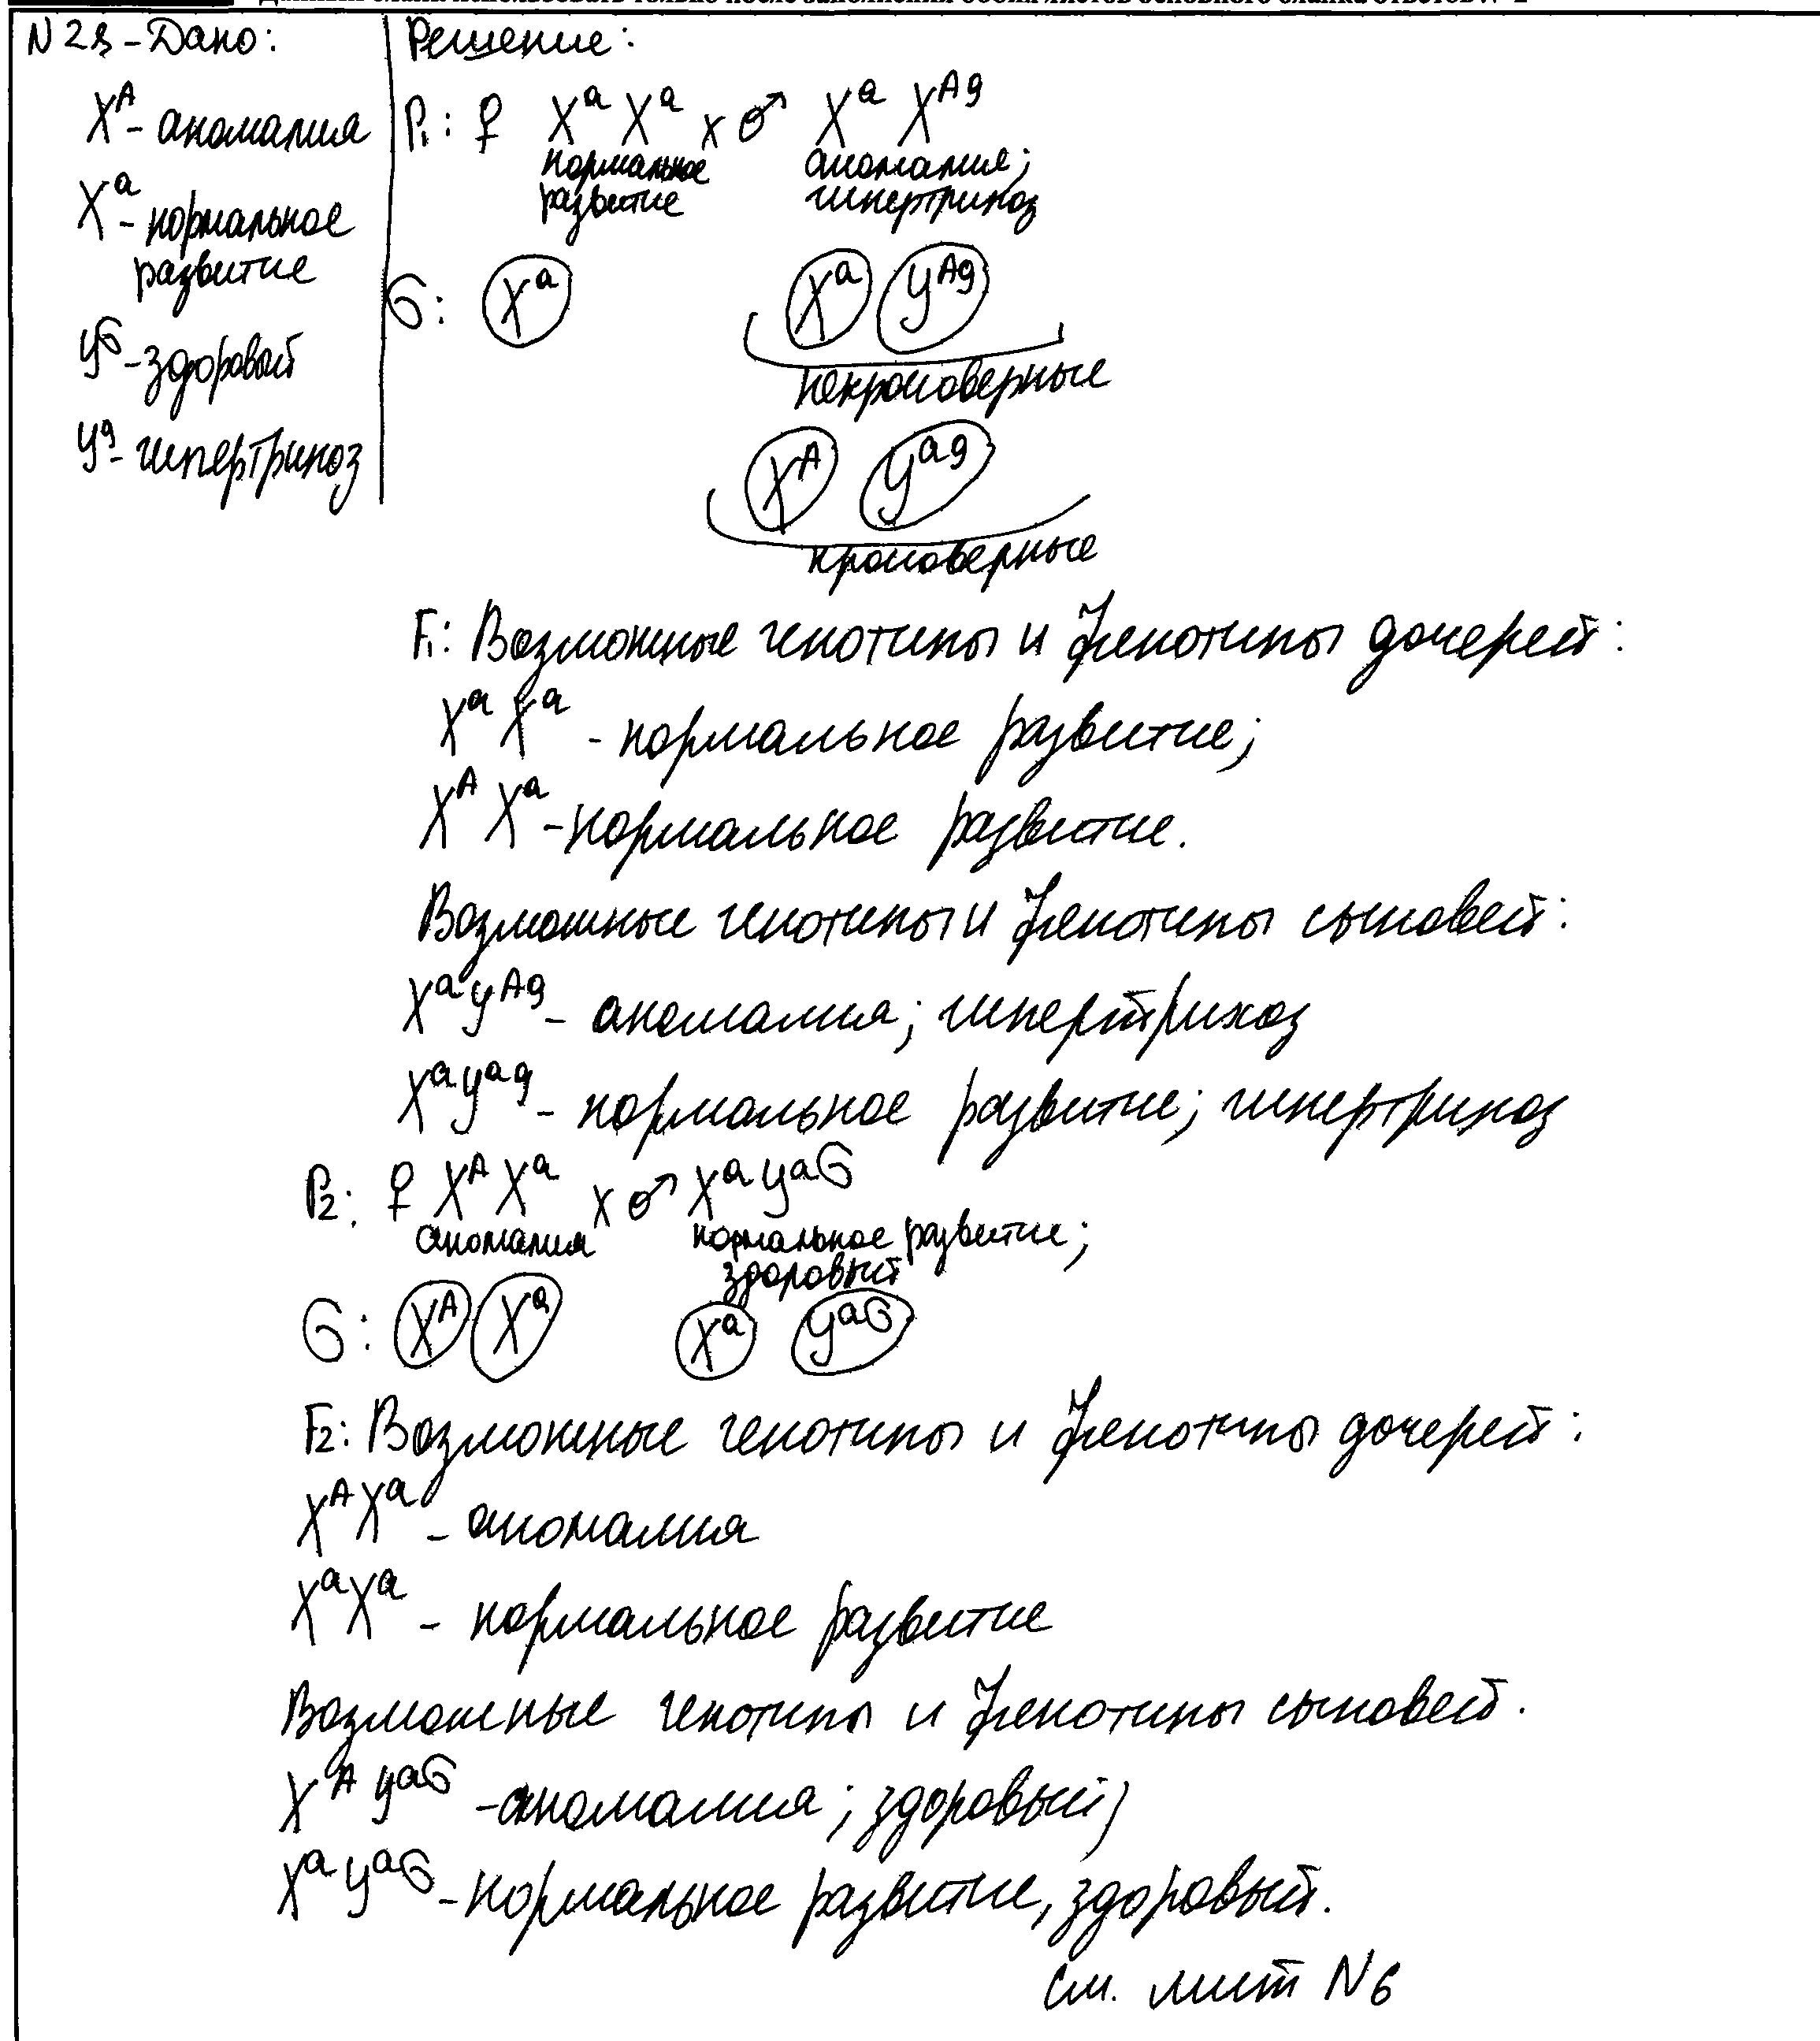 N 28 - Дано:
X^A - аномалия
X^a - нормальное
развитие
y^G - здоровый
y^g - гипертрихоз
Решение:
P₁: ♀ X^a X^a x ♂ X^a X^Ag
нормальное развитие аномалия; гипертрихоз
G: X^a X^a y^Ag
некроссоверные
X^A y^ag
кроссоверные
F₁: Возможные генотипы и фенотипы дочерей:
X^a X^a - нормальное развитие;
X^A X^a - нормальное развитие.
Возможные генотипы и фенотипы сыновей:
X^a y^Ag - аномалия; гипертрихоз
X^a y^ag - нормальное развитие; гипертрихоз
P₂: ♀ X^A X^a x ♂ X^a y^aG
аномалия нормальное развитие;
здоровый
G: X^A X^a X^a y^aG
F₂: Возможные генотипы и фенотипы дочерей:
X^A X^a - аномалия
X^a X^a - нормальное развитие
Возможные генотипы и фенотипы сыновей.
X^A y^aG - аномалия; здоровый;
X^a y^aG - нормальное развитие, здоровый.
см. лист N 6